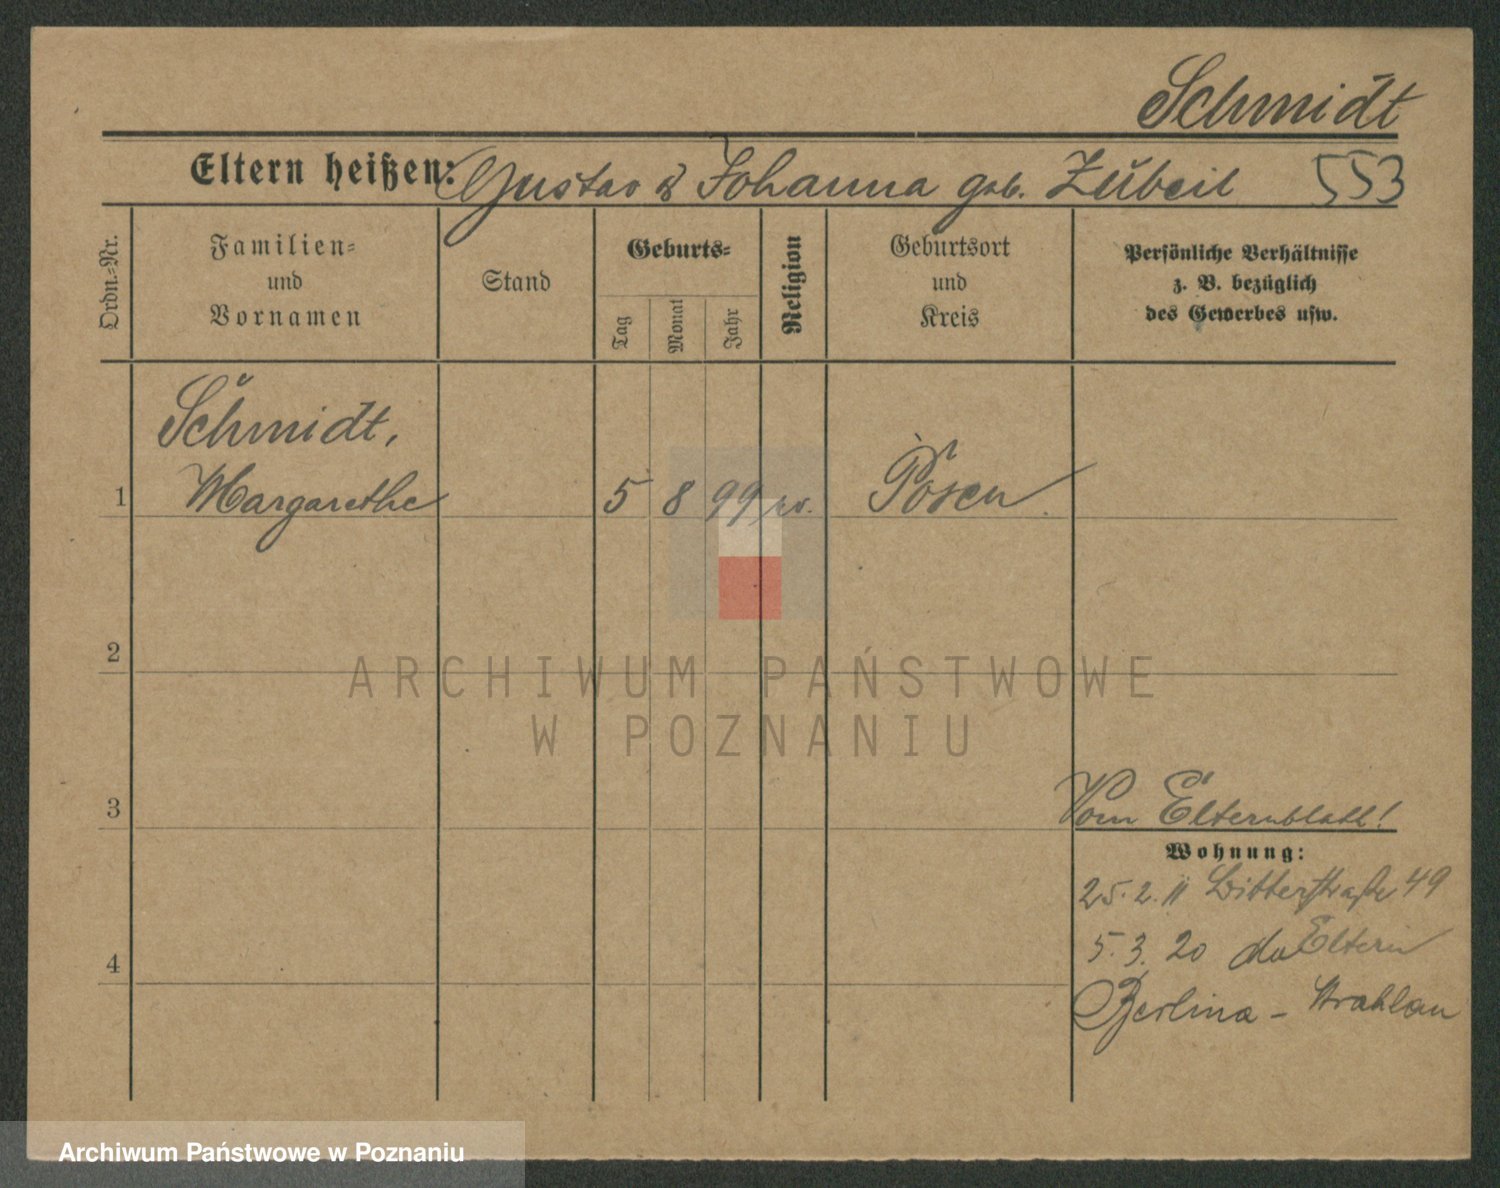 Schmidt
Eltern heißen: Gustav & Johanna geb. Zŭbeil 553
Ordn.=Nr.
Familien=
und
Vornamen
Stand
Geburts=
Tag
Monat
Jahr
Religion
Geburtsort
und
Kreis
Persönliche Verhältnisse
z. B. bezüglich
des Gewerbes usw.
Schmidt,
1 Margarethe 5 8 99 ev. Posen
2
ARCHIWUM PAŃSTWOWE
W POZNANIU
3
Vom Elternblatt!
Wohnung:
25.2.11 Bitterstraße 49
5.3.20 Eltern
4
Berlin - Stralau
Archiwum Państwowe w Poznaniu